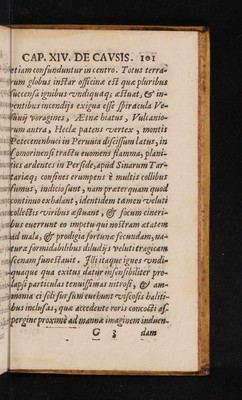 CAP. XIV. DE CAVSIS. 101
etiam confunduntur in centro. Totus terra-
rum globus instar officinæ est quæ pluribus
succensa ignibus vndiquaq; æstuat, & in-
gentibus incendijs exigua esse spiracula Ve-
suuij voragines, Ætnæ hiatus, Vulcanio-
rum antra, Heclæ patens vertex, montis
Potecenenbuci in Peruuia discissum latus, in
Comorinensi tractu euomens flamma, plani-
ties ardentes in Perside, apud Sinarum Tar-
tariaq; confines erumpens è multis collibus
fumus, indicio sunt, nam præterquam quod
continuo exhalant, identidem tamen veluti
collectis viribus æstuant, & focum cineri-
bus euerrunt eo impetu qui nostram ætatem
ad mala, & prodigia fortunæ fecundam, na-
turæ formidabilibus diludijs veluti tragicam
scenam funestauit. Illi itaque ignes vndi-
quaque qua exitus datur insensibiliter pro-
lapsi particulas tenuissimas nitrosi, & am-
monia ci solis sursum euehunt viscosis haliti-
bus inclusas, quæ accedente roris concocti as-
pergine proximè ad mannæ imaginem induen-
G 3 dam